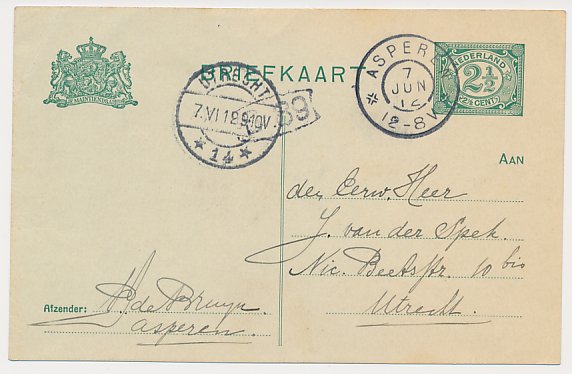 JE MAINTIENDRAI
BRIEFKAART
NEDERLAND
2½
2½ CENT
ASPEREN
7
JUN
12
12-8V
UTRECHT
7.VI.12 9-10V
14
69
AAN
den Eerw. Heer
J. van der Spek.
Nic. Beetsstr. 10 bis
Utrecht.
Afzender: de Bruyn.
asperen.